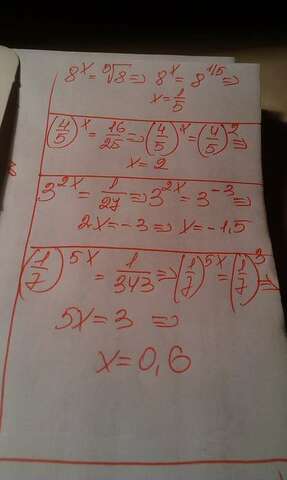 8^x = ⁵√8 => 8^x = 8^1/5 =>
x = 1/5
(4/5)^x = 16/25 => (4/5)^x = (4/5)^2 =>
x = 2
3^2x = 1/27 => 3^2x = 3^-3 =>
2x = -3 => x = -1,5
(1/7)^5x = 1/343 => (1/7)^5x = (1/7)^3 =>
5x = 3 =>
x = 0,6